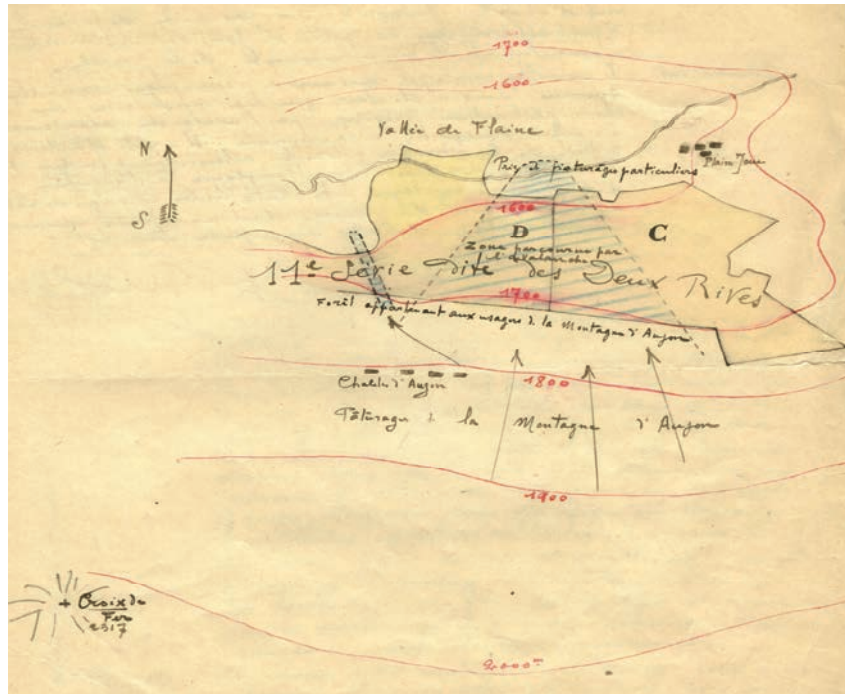 1700
1600
Vallée de Flaine
N
S
Prés et pâturages particuliers
Plain Joux
1600
D
C
Zone parcourue par
l'avalanche
11e Série dite des Deux Rives
1700
Forêt appartenant aux usagers de la Montagne d'Aujon
Chalets d'Aujon
1800
Pâturages de la Montagne d'Aujon
1900
Croix de
Fer
2317
2000m